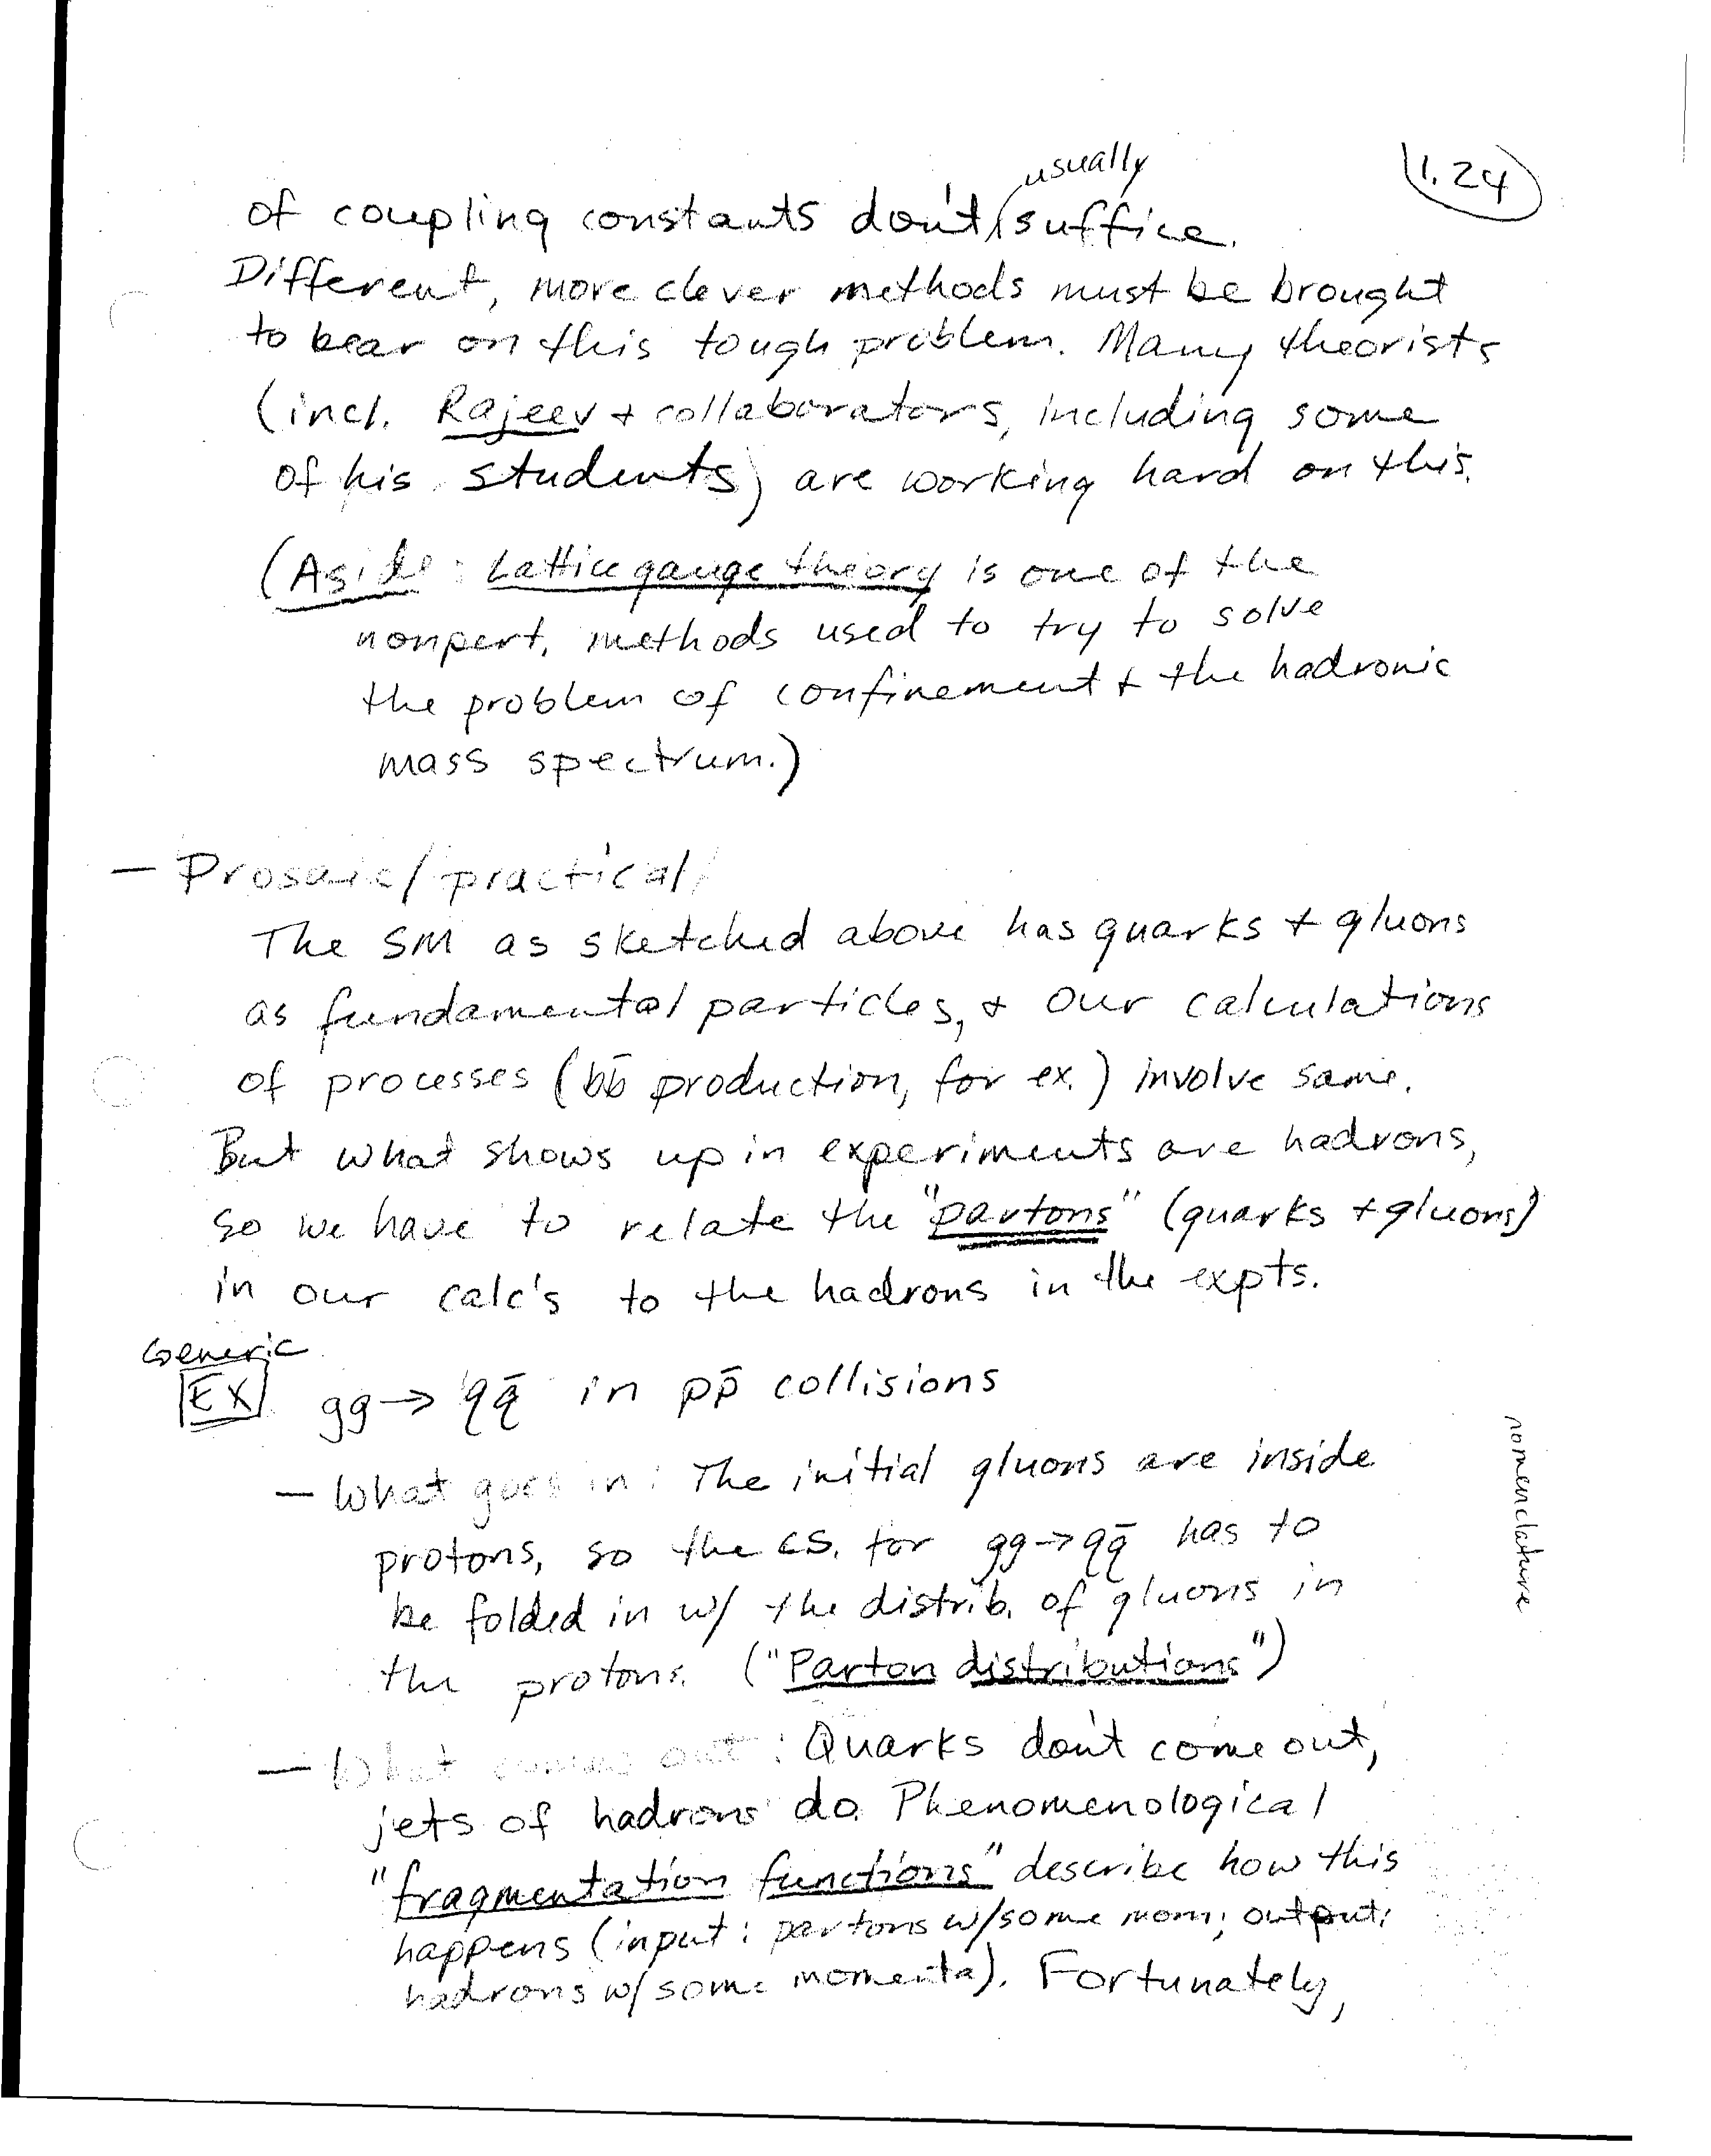 1.24
usually
of coupling constants don't suffice.
Different, more clever methods must be brought
to bear on this tough problem. Many theorists
(incl. Rajeev + collaborators, including some
of his students) are working hard on this.
(Aside: Lattice gauge theory is one of the
nonpert. methods used to try to solve
the problem of confinement + the hadronic
mass spectrum.)
— Prosaic/practical:
The SM as sketched above has quarks + gluons
as fundamental particles, + our calculations
of processes (bb̄ production, for ex.) involve same.
But what shows up in experiments are hadrons,
so we have to relate the "partons" (quarks + gluons)
in our calc's to the hadrons in the expts.
Generic
EX gg → qq̄ in pp̄ collisions
— What goes in: The initial gluons are inside
protons, so the cs. for gg → qq̄ has to
be folded in w/ the distrib. of gluons in
the protons. ("Parton distributions")
nomenclature
— What comes out: Quarks don't come out,
jets of hadrons do. Phenomenological
"fragmentation functions" describe how this
happens (input: partons w/some mom; output:
hadrons w/ some momenta). Fortunately,